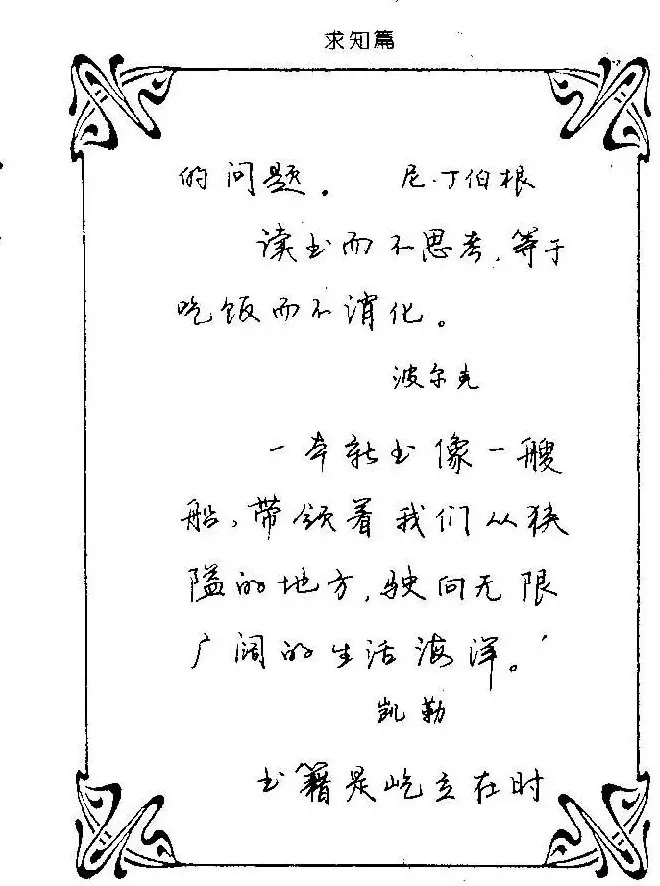 求知篇
的问题。 尼·丁伯根
读书而不思考,等于
吃饭而不消化。
波尔克
一本新书像一艘
船,带领着我们从狭
隘的地方,驶向无限
广阔的生活海洋。
凯勒
书籍是屹立在时